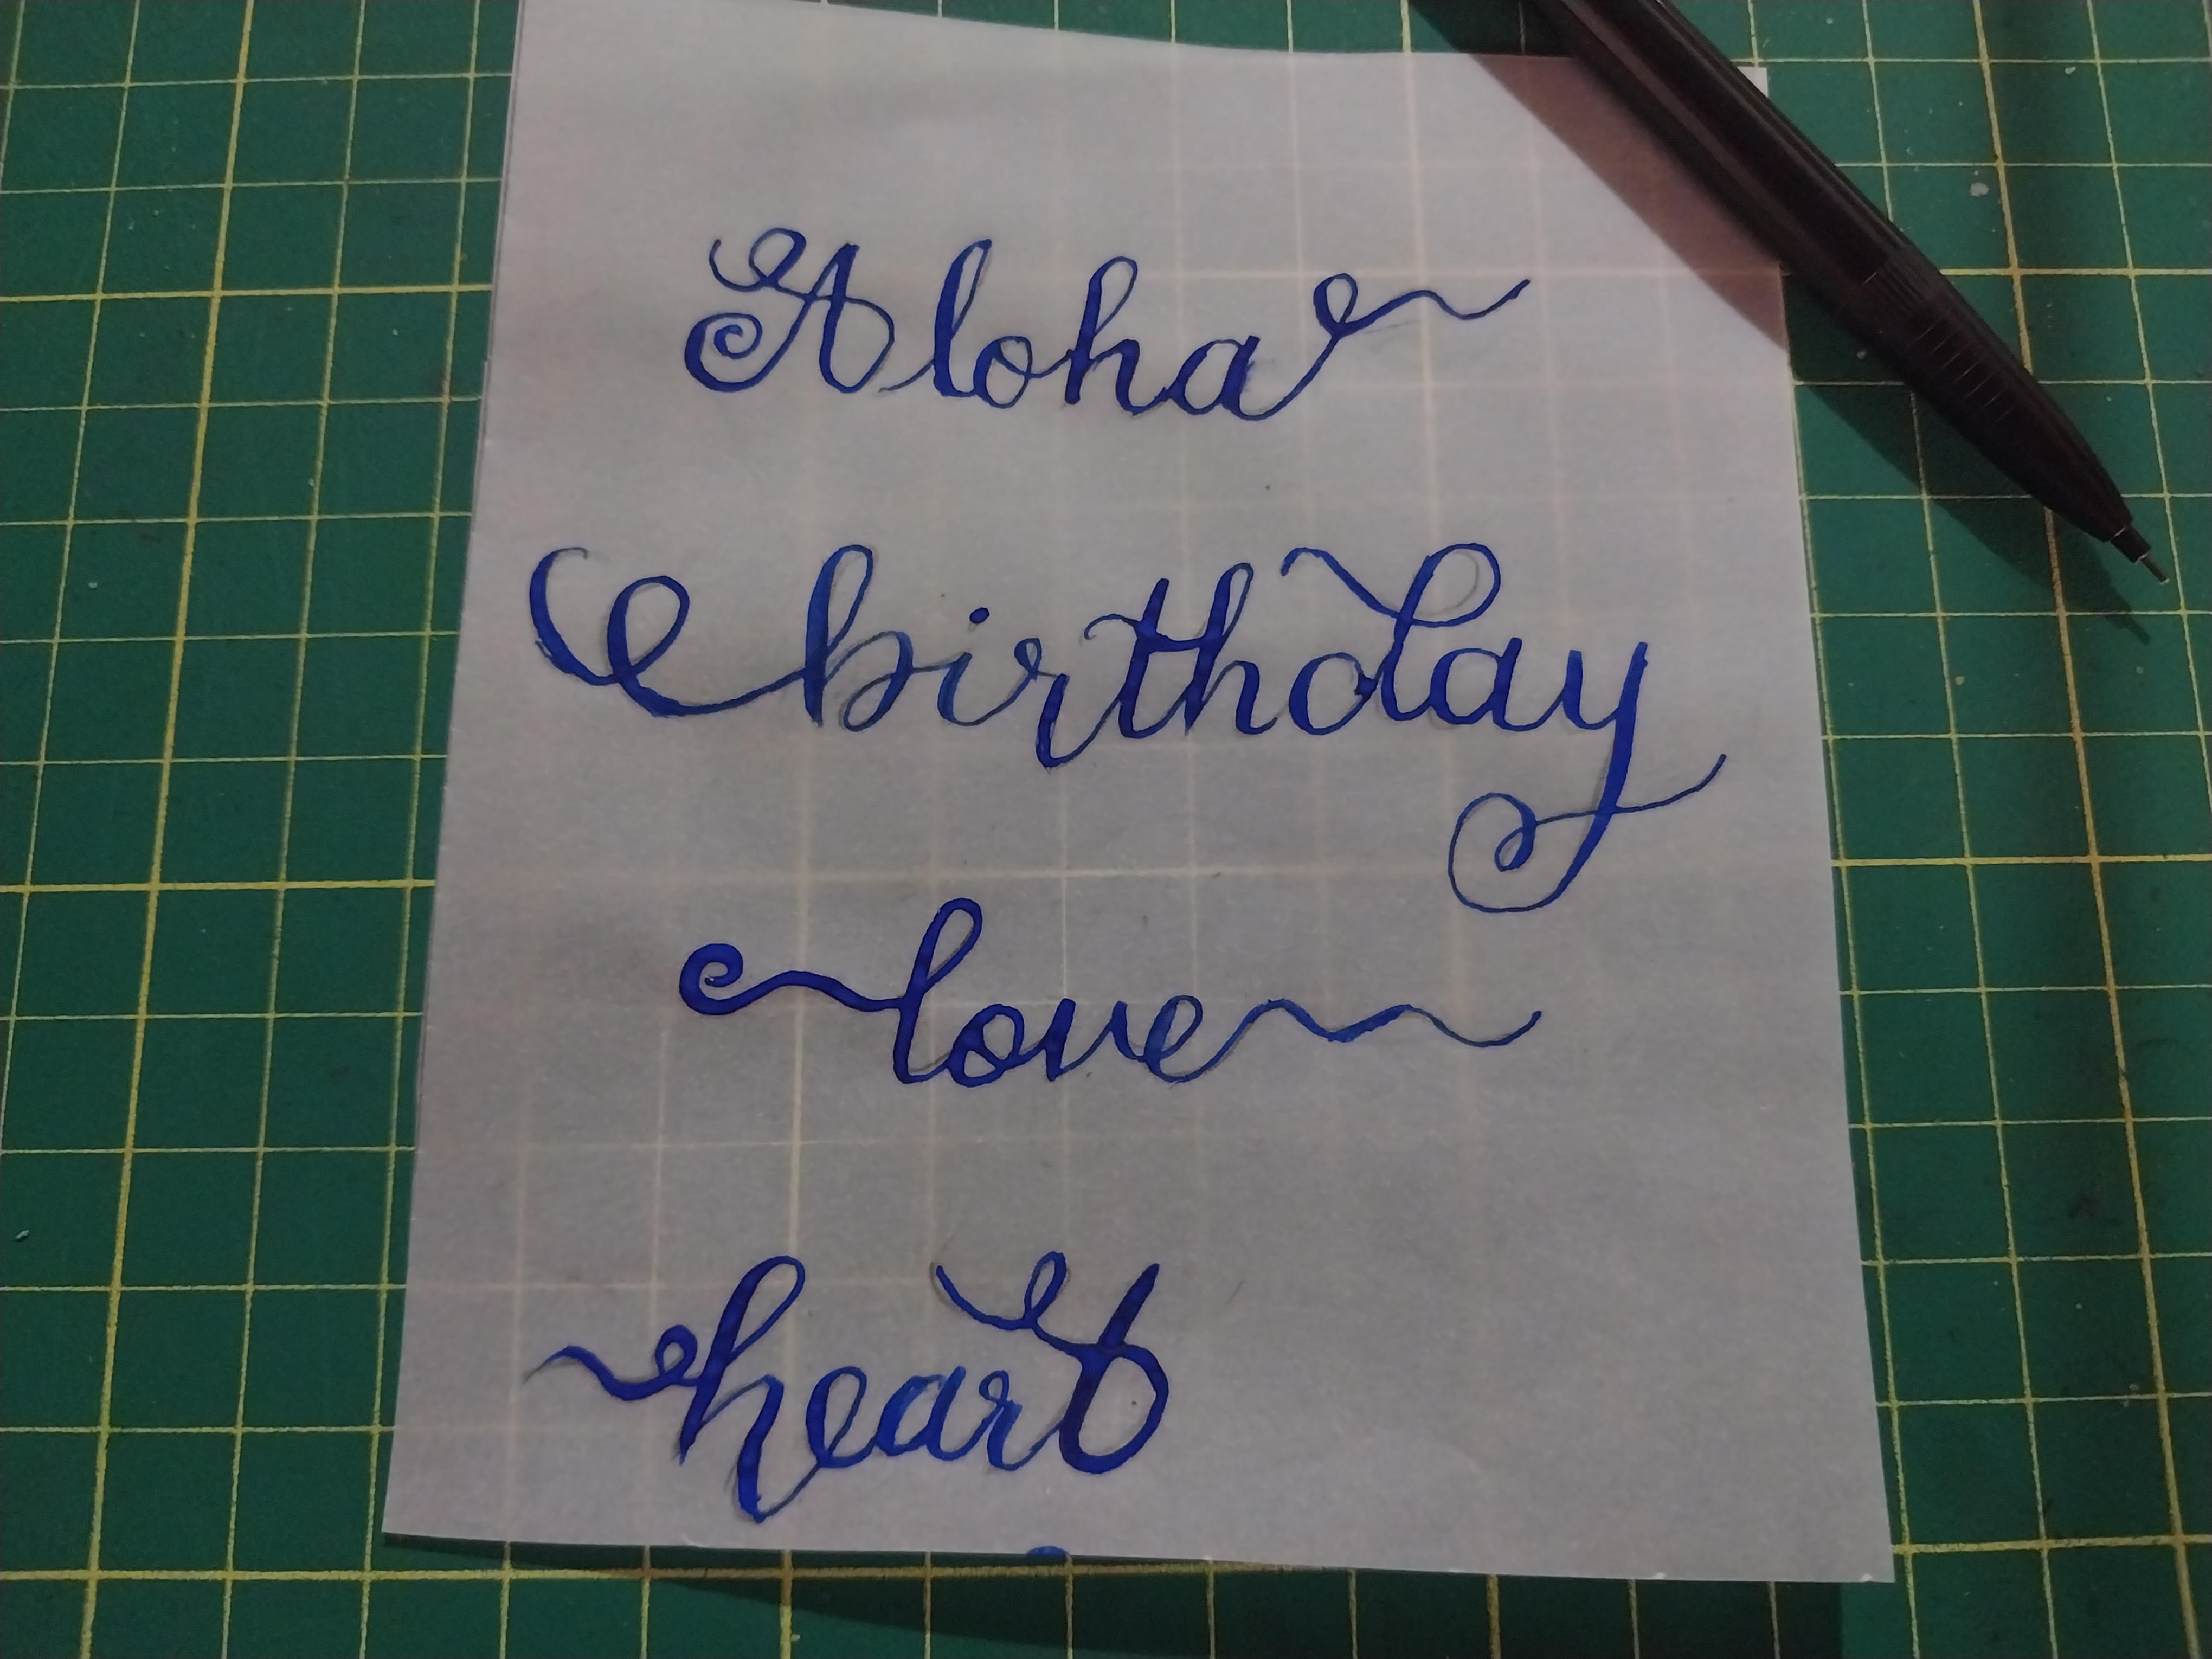 Aloha
birthday
love
heart